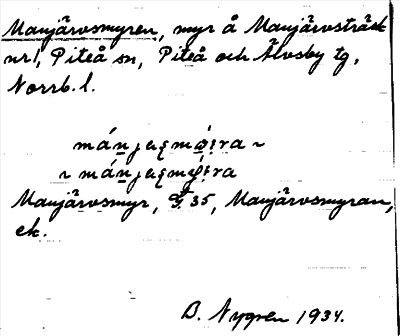 Manjärvsmyren, myr å Manjärvsträsk
nr 1, Piteå sn, Piteå och Älvsby tg,
Norrb. l.
Manjärvsmyr, G 35, Manjärvsmyran,
ek.
B. Nygren 1934.